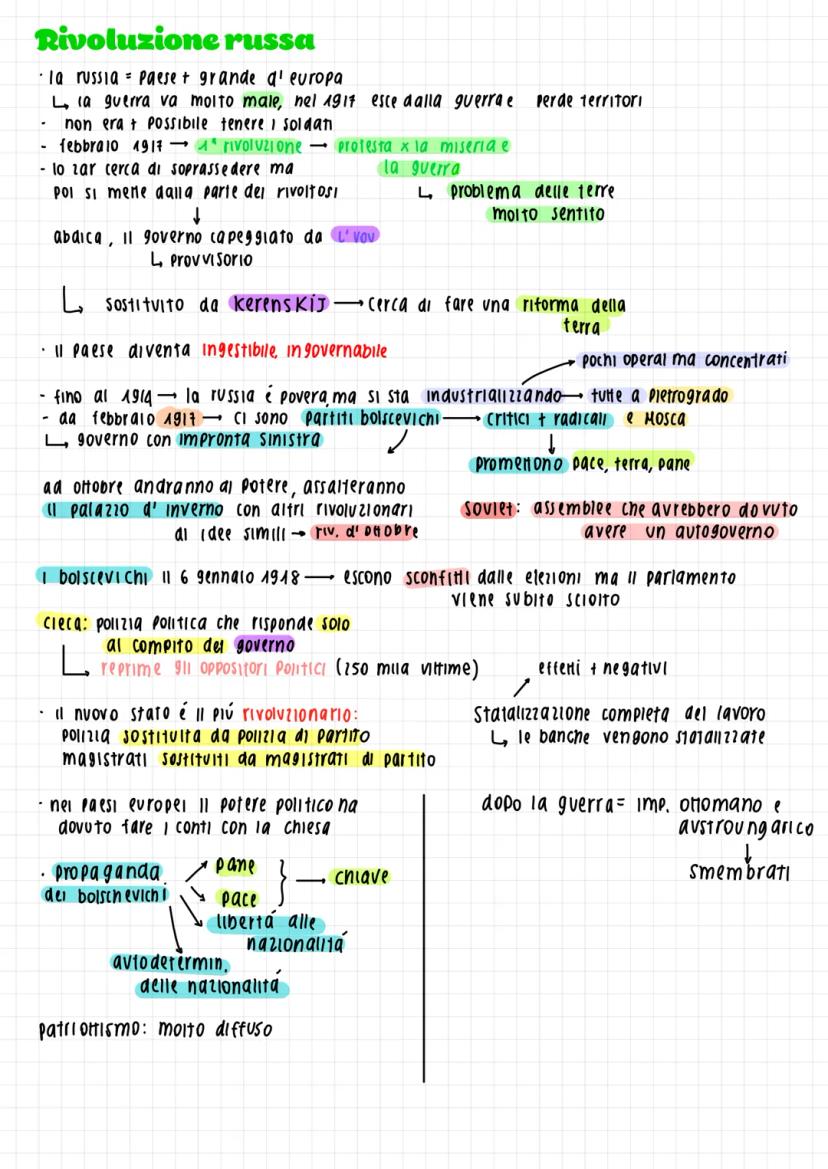 Rivoluzione russa
· la russia = paese + grande d' europa
↳ la guerra va molto male, nel 1917 esce dalla guerra e perde territori
- non era + possibile tenere i soldati
- febbraio 1917 → 1ª rivoluzione → protesta x la miseria e
la guerra
- lo zar cerca di soprassedere ma
poi si mette dalla parte dei rivoltosi
↳ problema delle terre
molto sentito
↓
abdica, il governo capeggiato da L'vov
↳ provvisorio
↳ sostituito da Kerenskij → cerca di fare una riforma della
terra
· il paese diventa ingestibile, ingovernabile
pochi operai ma concentrati
- fino al 1914 → la russia é povera, ma si sta industrializzando → tutte a pietrogrado
e Mosca
- da febbraio 1917 → ci sono partiti bolscevichi → critici + radicali
↳ governo con impronta sinistra
↓
promettono pace, terra, pane
ad ottobre andranno al potere, assalteranno
il palazzo d' inverno con altri rivoluzionari
di idee simili → riv. d' ottobre
soviet: assemblee che avrebbero dovuto
avere un autogoverno
i bolscevichi il 6 gennaio 1918 → escono sconfitti dalle elezioni ma il parlamento
viene subito sciolto
cieca: polizia politica che risponde solo
al compito del governo
↳ reprime gli oppositori politici (250 mila vittime)
effetti + negativi
· il nuovo stato é il piú rivoluzionario:
polizia sostituita da polizia di partito
magistrati sostituiti da magistrati di partito
Statalizzazione completa del lavoro
↳ le banche vengono statalizzate
· nei paesi europei il potere politico ha
dovuto fare i conti con la chiesa
· propaganda
dei bolschevichi
pane
pace
} → chiave
libertá alle
nazionalitá
autodetermin.
delle nazionalitá
patriottismo: molto diffuso
dopo la guerra = imp. ottomano e
austroungarico
↓
smembrati